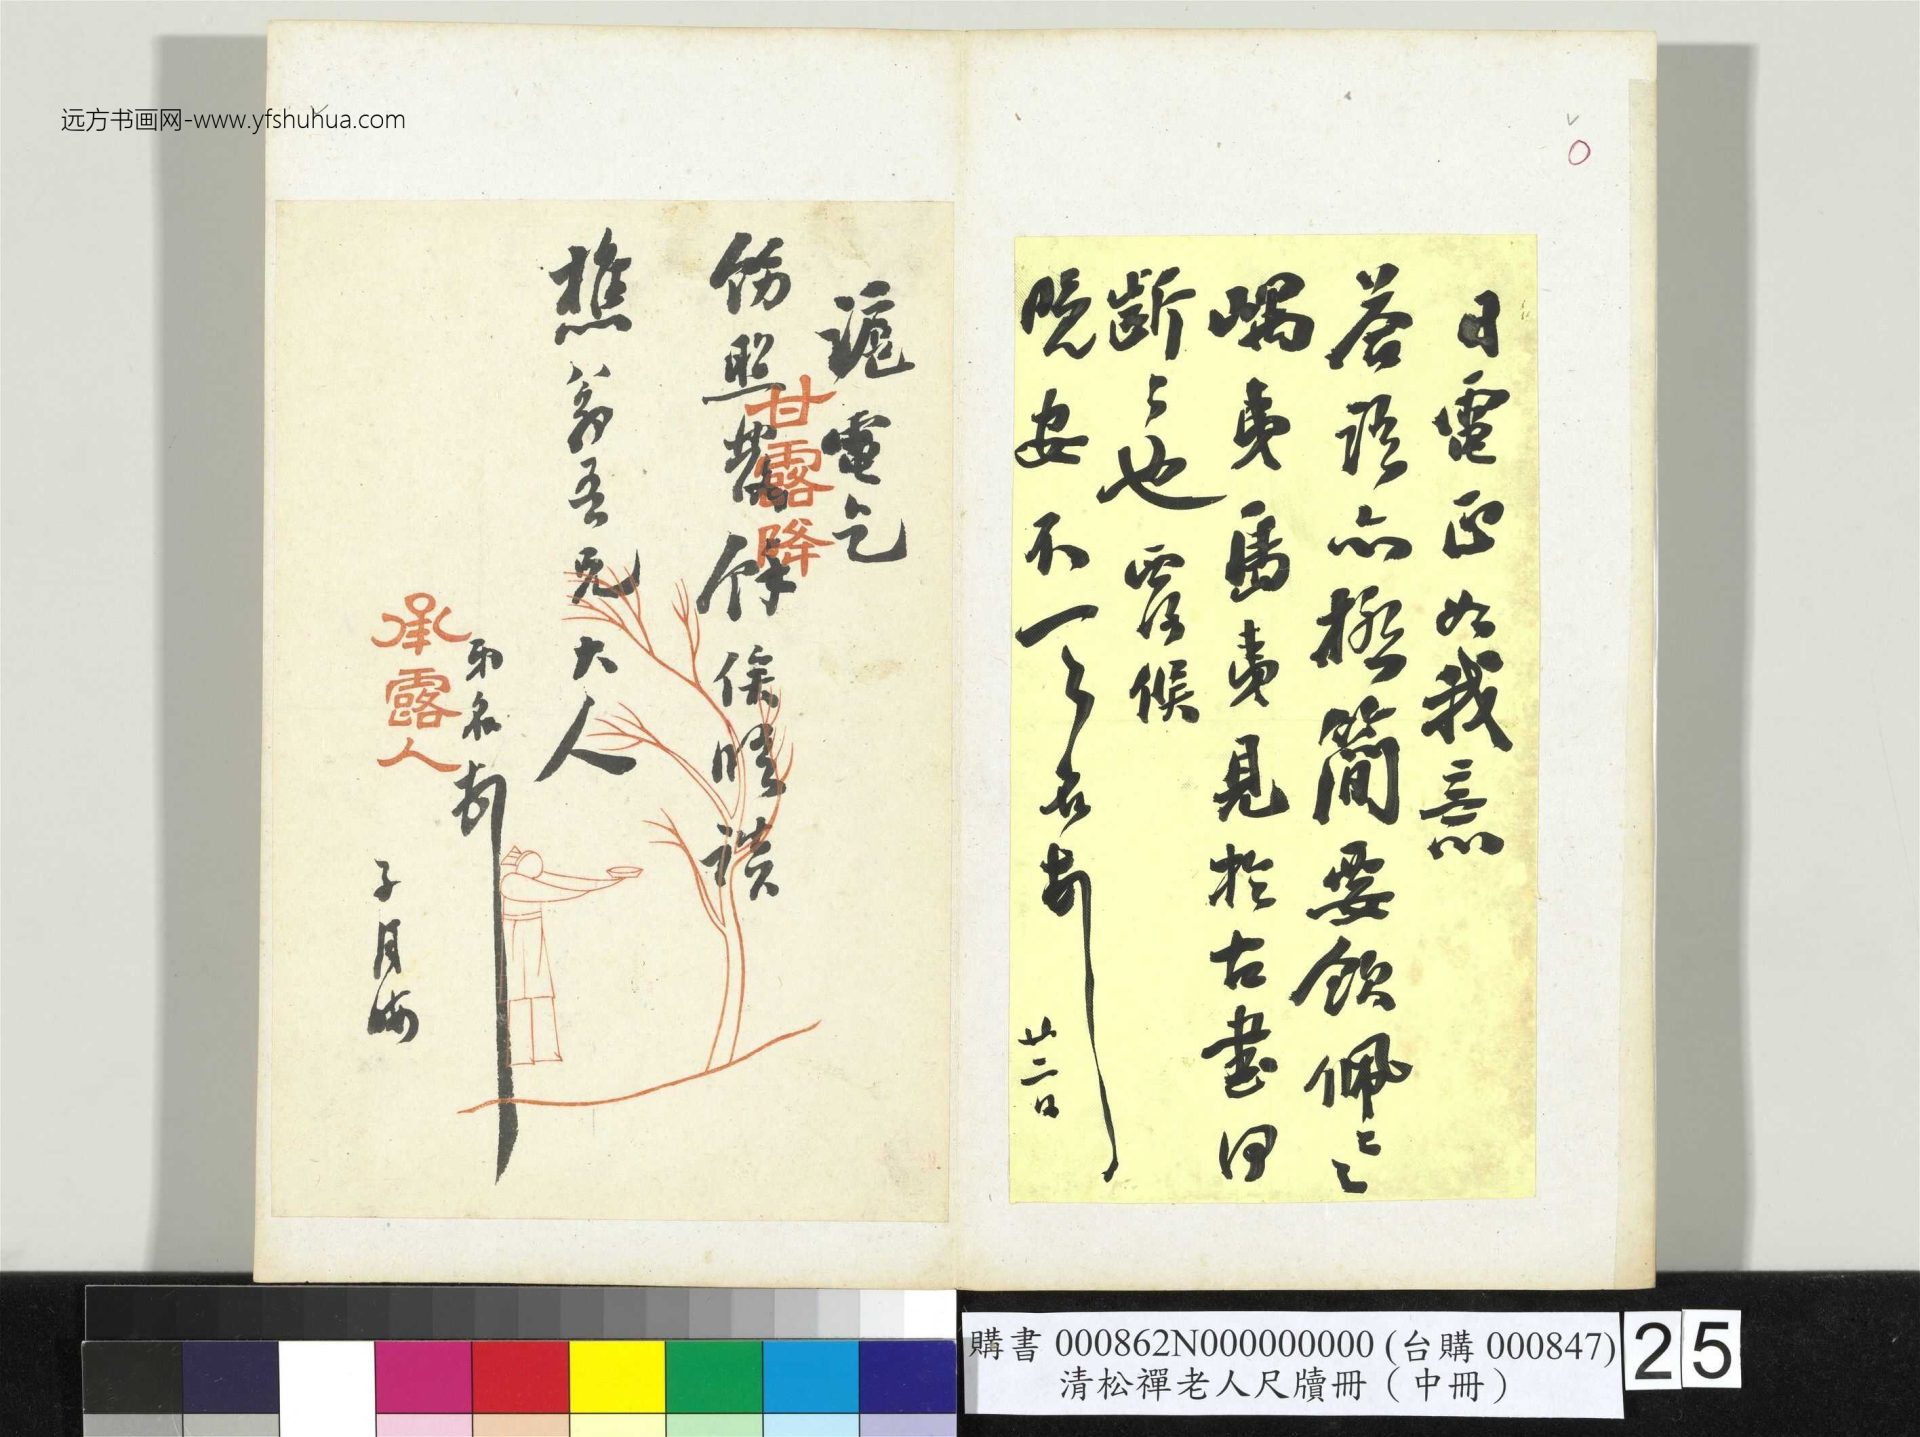 远方书画网-www.yfshuhua.com
日電正如我意
答語亦極簡要欽佩〻〻
嵎夷島夷見於古書何
斷〻也 覆候
晚安不一〻名頓
廿二日
滬電乞
飭照發餘俟晤談
樵翁吾兄大人
弟名頓
子月
甘露降
承露人
購書 000862N000000000 (台購 000847)
清松禪老人尺牘冊（中冊）
25